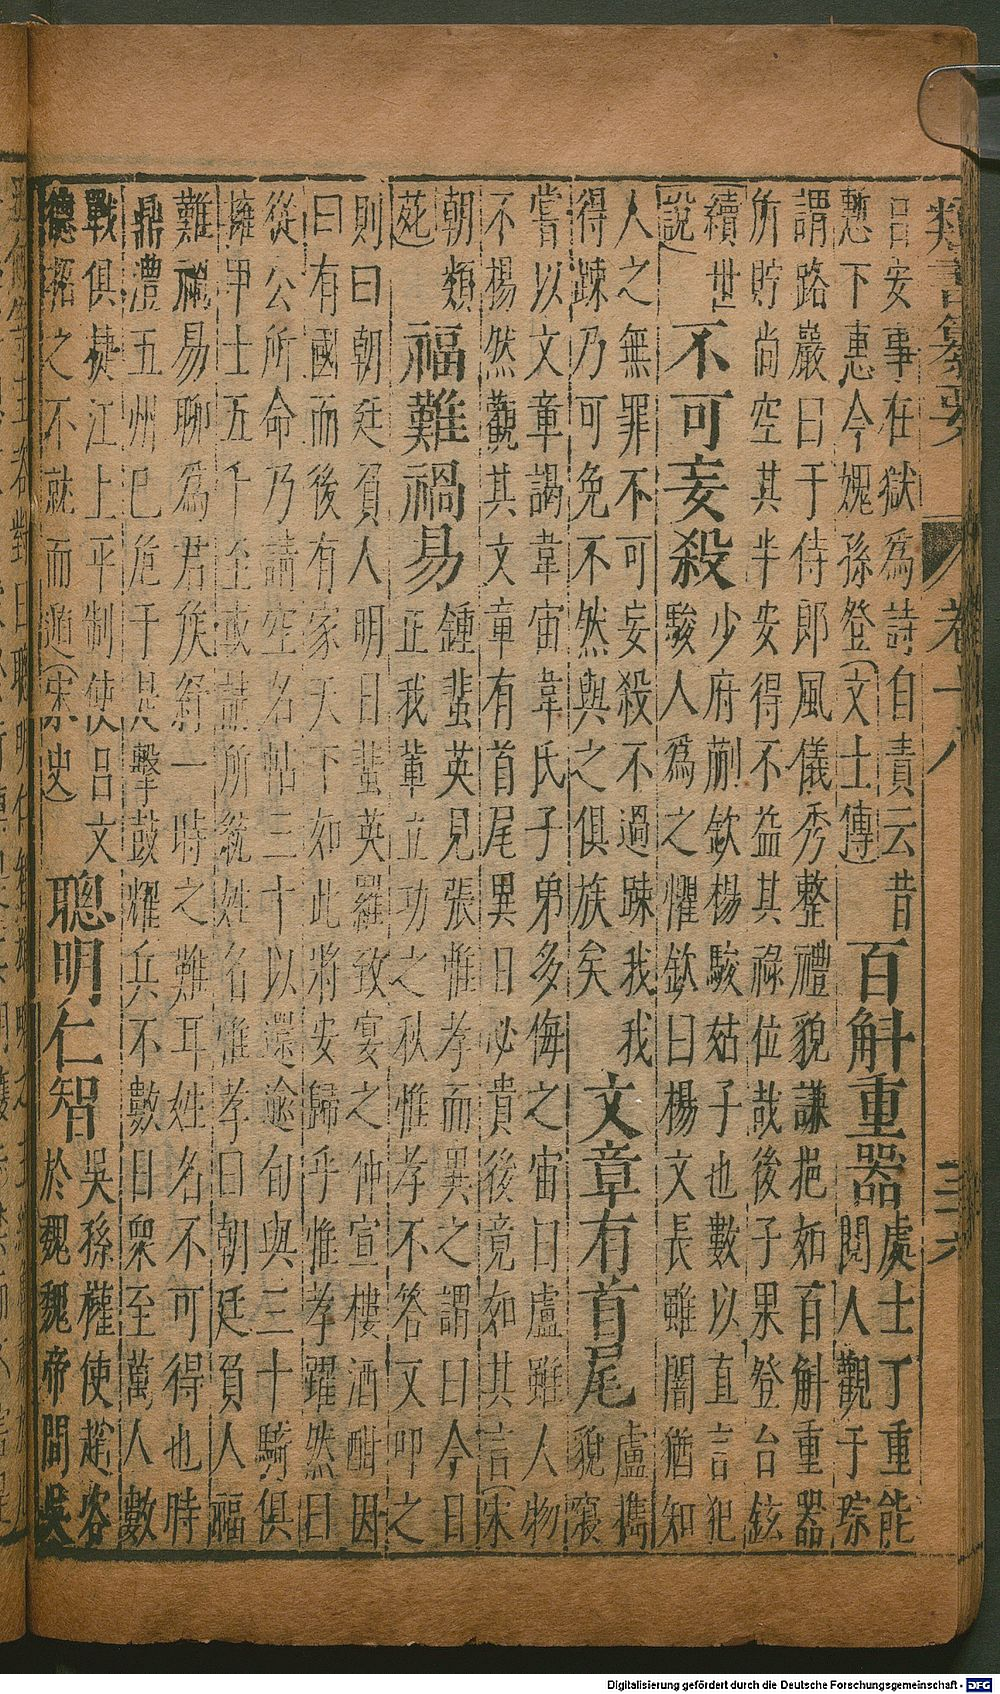 類書纂要 卷十八 三十六
呂安事在獄爲詩自責云昔
慙下惠今媿孫登(文士傳)
百斛重器
處士丁重能
閱人觀于琮
謂路巖曰于侍郎風儀秀整禮貌謙挹如百斛重器
所貯尚空其半安得不益其祿位哉後子果登台鉉
續世
說)
不可妄殺
少府蒯欽楊駿姑子也數以直言犯
駿人爲之懼欽曰楊文長雖闇猶知
人之無罪不可妄殺不過踈我我
得踈乃可免不然與之俱族矣
文章有首尾
盧攜
貌寢
嘗以文章謁韋宙韋氏子弟多侮之宙曰盧雖人物
不楊然觀其文章有首尾異日必貴後竟如其言(宋
朝類
苑)
福難禍易
鍾蜚英見張惟孝而異之謂曰今日
正我輩立功之秋惟孝不答又叩之
則曰朝廷負人明日蜚英羅致宴之仲宣樓酒酣因
曰有國而後有家天下如此將安歸乎惟孝躍然曰
從公所命乃請空名帖三十以還逾旬與三十騎俱
擁甲士五千至或誌所統姓名惟孝曰朝廷負人福
難禍易聊爲君侯紓一時之難耳姓名不可得也時
鼎澧五州巳危于是擊鼓耀兵不數日衆至萬人數
戰俱捷江上平制使呂文
德招之不就而遁(宋史)
聰明仁智
吳孫權使趙咨
於魏魏帝問吳
Digitalisierung gefördert durch die Deutsche Forschungsgemeinschaft - DFG